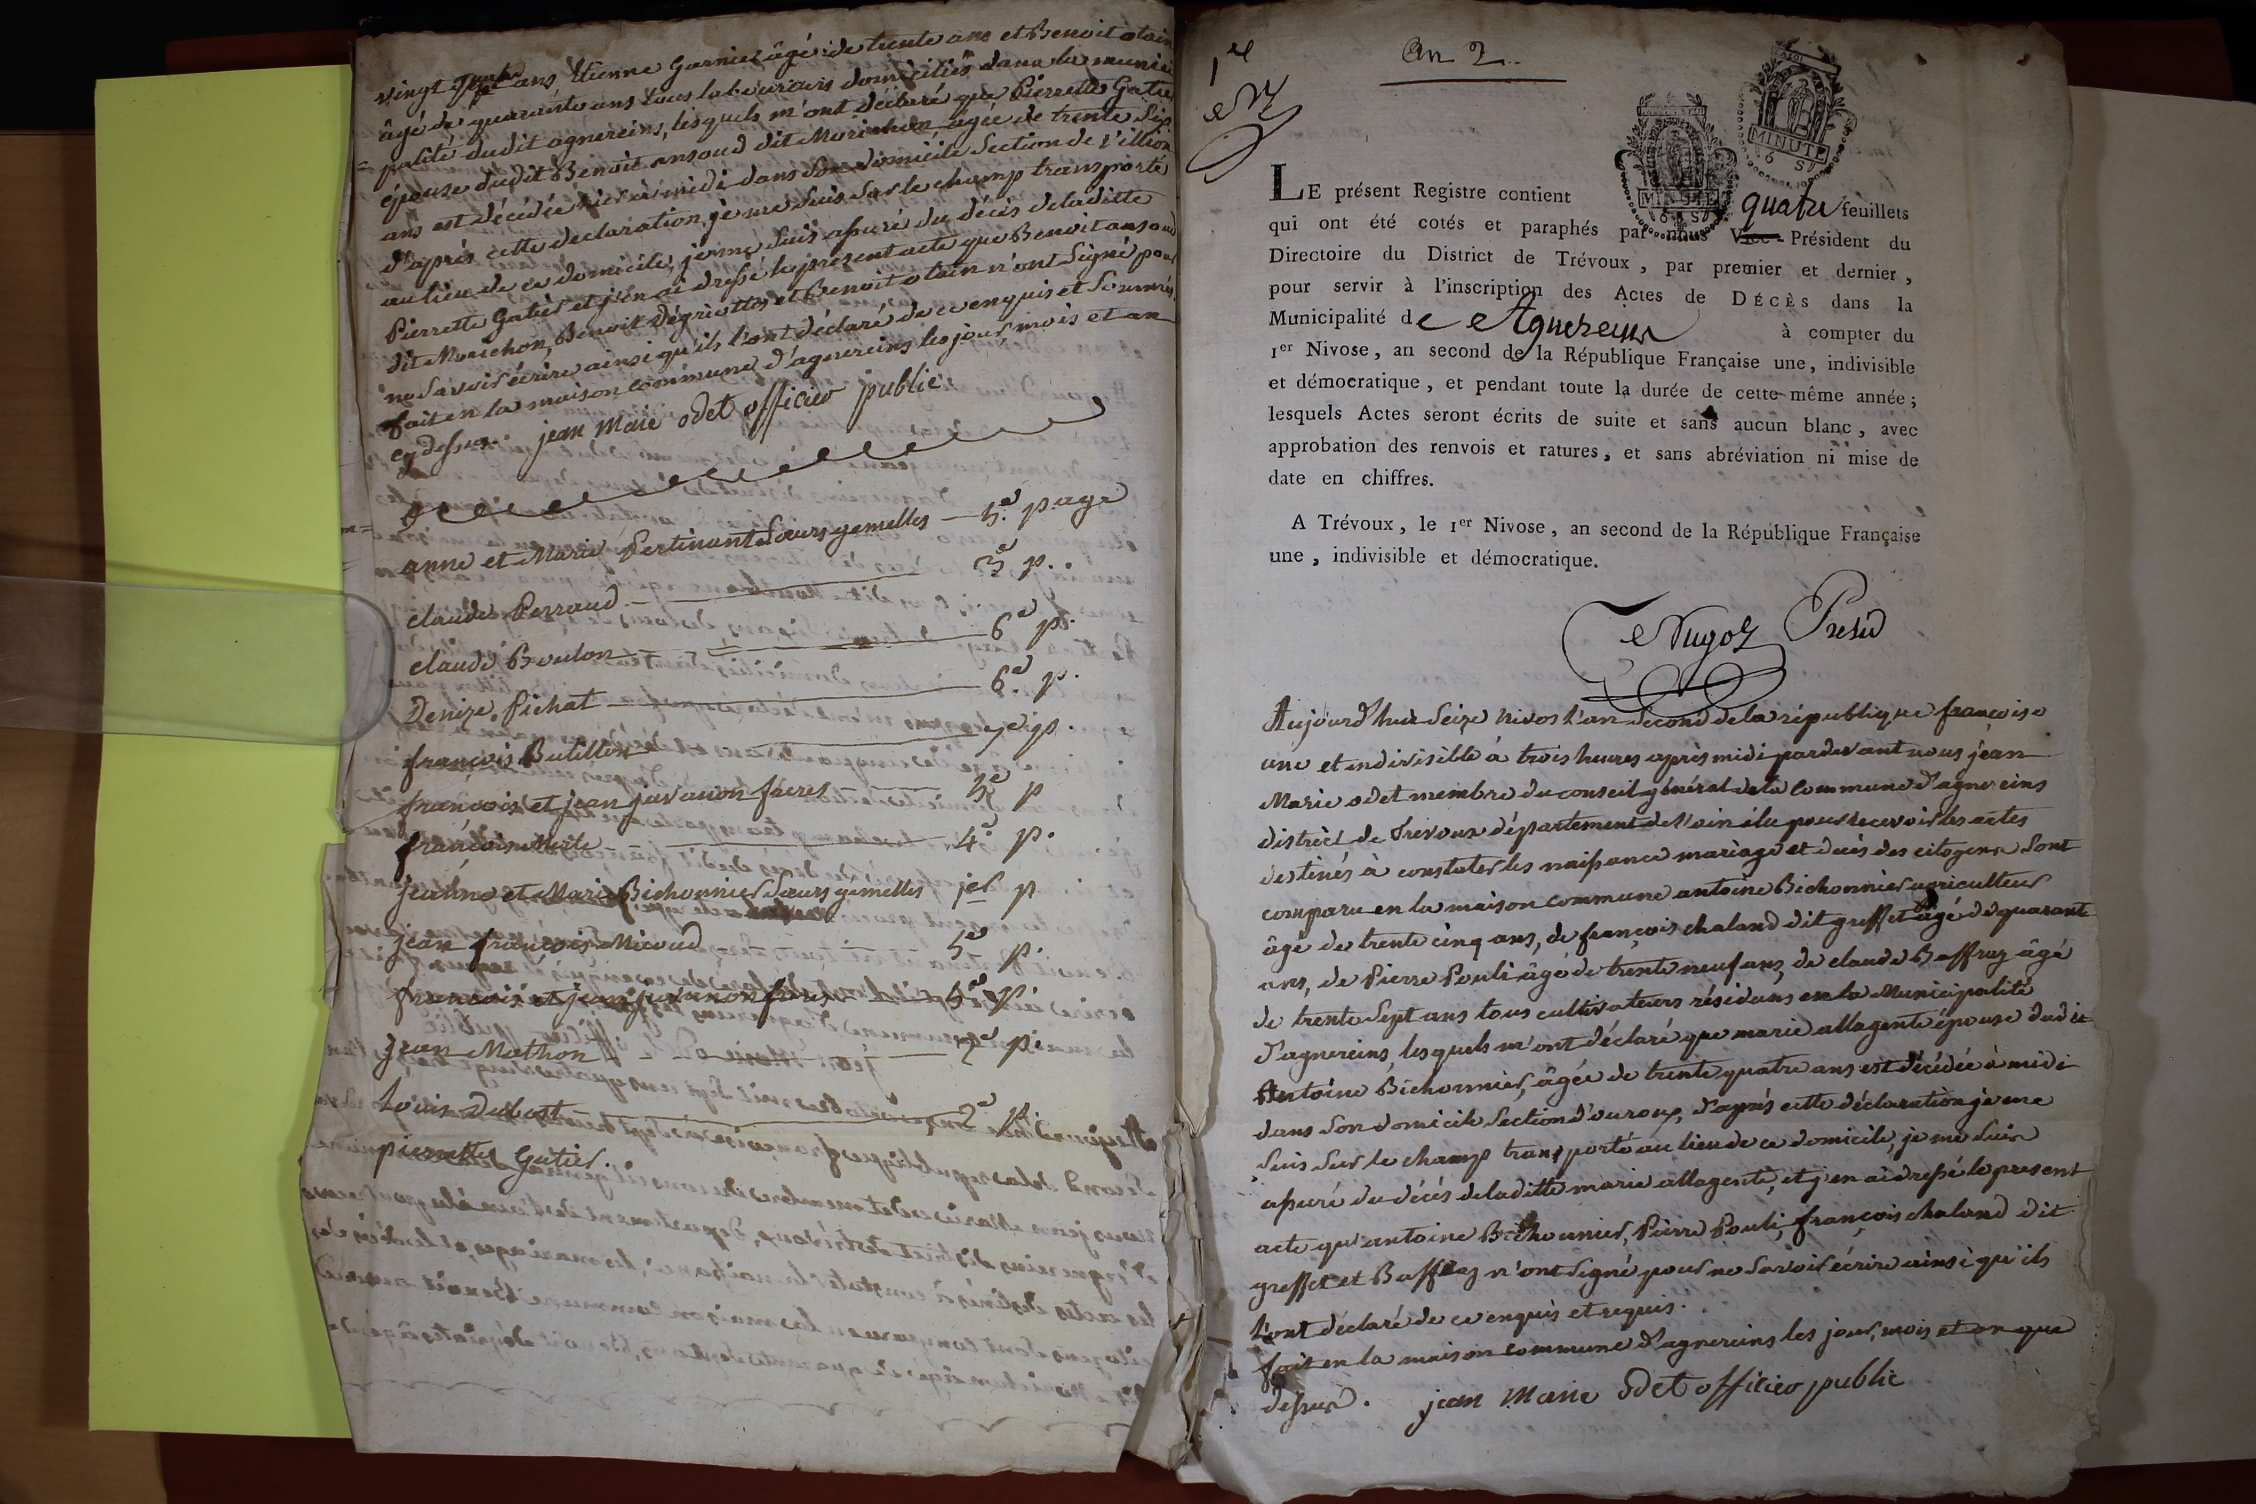 vingt quatre ans Etienne Garnier âgé de trente ans et Benoit otain
âgé de quarante ans tous laboureurs domiciliés dans la munici
palité dudit agnereins, lesquels m'ont déclaré que Pierrette Gatier
épouse dudit Benoit ansaud dit Morichon, agée de trente six
ans est décédée hier à midi dans son domicile Section de
d'après cette déclaration, je me suis sur le champ transporté
au lieu de ce domicile, je me suis assuré du décès de laditte
Pierrette Gatier et j'en ai dressé le présent acte que Benoit ansaud
dit Morichon, Benoit Dégriottes et Benoit otain n'ont signé pour
ne savoir écrire ainsi qu'ils l'ont déclaré de ce enquis et sommés,
fait en la maison commune d'agnereins les jour, mois et an
cy dessus. jean Maie odet officier public
anne et Marie Pertinant Sœurs gemelles — 5.e page
claude Perraud — 3.e p.
claude Boulon — 6.e p.
Denize Pichat — 6.e p.
françois Butillon — 7e p.
françois et jean juvanon freres — 5e p
françoise Merle — 4.e p.
jeanne et Marie Bichonnier Sœurs gemelles 1er p
jean françois Micoud 5e p.
francois et jean juvanon freres 5e p.
jean Mathon — 7e p.
Louis Dubost — 2e p.
pierrette Gatier.
1er
An 2..
MINUTE
6 S
MINUTE
6 S
LE présent Registre contient quatre feuillets
qui ont été cotés et paraphés par nous Vice-Président du
Directoire du District de Trévoux, par premier et dernier,
pour servir à l'inscription des Actes de DÉCÈS dans la
Municipalité de Agnereins à compter du
1er Nivose, an second de la République Française une, indivisible
et démocratique, et pendant toute la durée de cette même année;
lesquels Actes seront écrits de suite et sans aucun blanc, avec
approbation des renvois et ratures, et sans abréviation ni mise de
date en chiffres.
A Trévoux, le 1er Nivose, an second de la République Française
une, indivisible et démocratique.
Presid
Aujourd'hui Seize nivos l'an Second de la république françoise
une et indivisible à trois heures après midi pardevant nous jean
Marie odet membre du conseil général de la Commune d'agnereins
district de Trevoux département de l'ain élu pour recevoir les actes
destinés à constater les naissance mariage et decès des citoyens Sont
comparu en la maison commune antoine Bichonnier agriculteur
âgé de trente cinq ans, de françois chaland dit greffet âgé de quarante
ans, de Pierre Pouli âgé de trente neuf ans, de claude Baffrez âgé
de trente Sept ans tous cultivateurs résidans en la Municipalité
d'agnereins, lesquels m'ont déclaré que marie allagente épouse dudit
Antoine Bichonnier, âgée de trente quatre ans est décédée à midi
dans Son domicile Section d'ouroux, d'après cette déclaration je me
Suis Sur le champ transporté au lieu de ce domicile, je me Suis
assuré du décès de laditte marie allagente, et j'en ai dressé le present
acte qu'antoine Bichonnier, Pierre Pouli, françois chaland dit
greffet et Baffrez n'ont Signé pour ne Savoir écrire ainsi qu'ils
l'ont déclaré de ce enquis et requis.
fait en la maison commune d'agnereins les jour, mois et an que
dessus. jean Marie Odet officier public